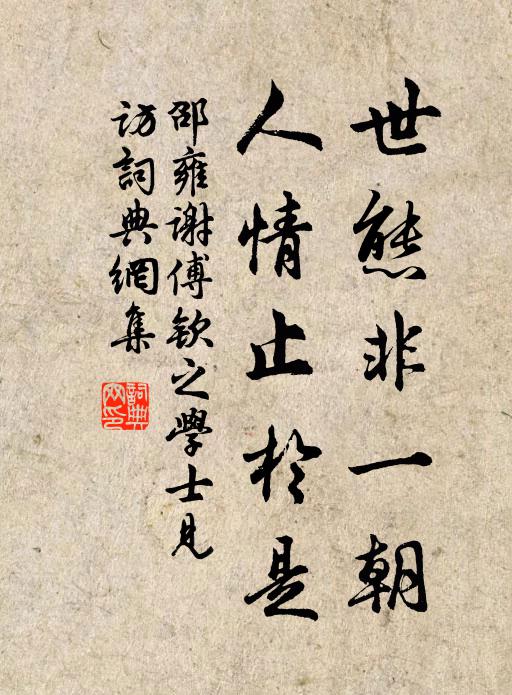 世態非一朝
人情止於是
邵雍謝傅欽之學士見
訪詞典網集
詞典
网印